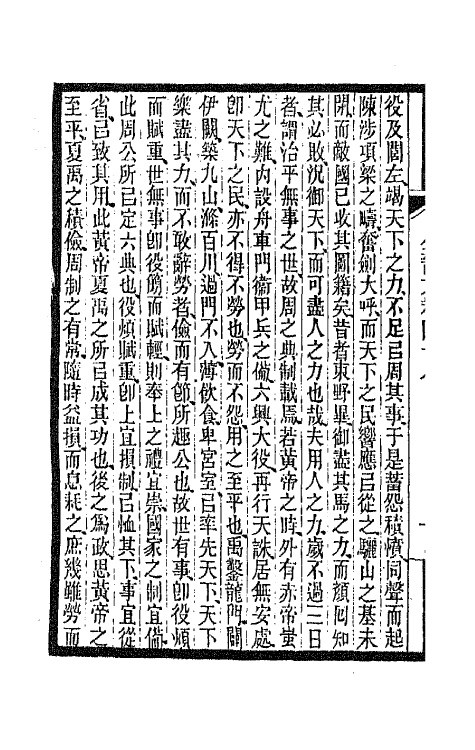 役及閭左竭天下之力不足㠯周其事于是蓄怨積憤同聲而起
陳涉項梁之疇奮劍大呼而天下之民響應㠯從之驪山之基未
閉而敵國已收其圖籍矣昔者東野畢御盡其馬之力而顏回知
其必敗況御天下而可盡人之力也哉夫用人之力歲不過三日
者謂治平無事之世故周之典制載焉若黃帝之時外有赤帝蚩
尤之難內設舟車門衞甲兵之備六興大役再行天誅居無安處
卽天下之民亦不得不勞也勞而不怨用之至平也禹鑿龍門闢
伊闕築九山滌百川過門不入薄飲食卑宮室㠯率先天下天下
樂盡其力而不敢辭勞者儉而有節所趣公也故世有事卽役煩
而賦重世無事卽役簡而賦輕則奉上之禮宜崇國家之制宜備
此周公所㠯定六典也役煩賦重卽上宜損制㠯恤其下事宜從
省㠯致其用此黃帝夏禹之所㠯成其功也後之爲政思黃帝之
至平夏禹之積儉周制之有常隨時益損而息耗之庶幾雖勞而